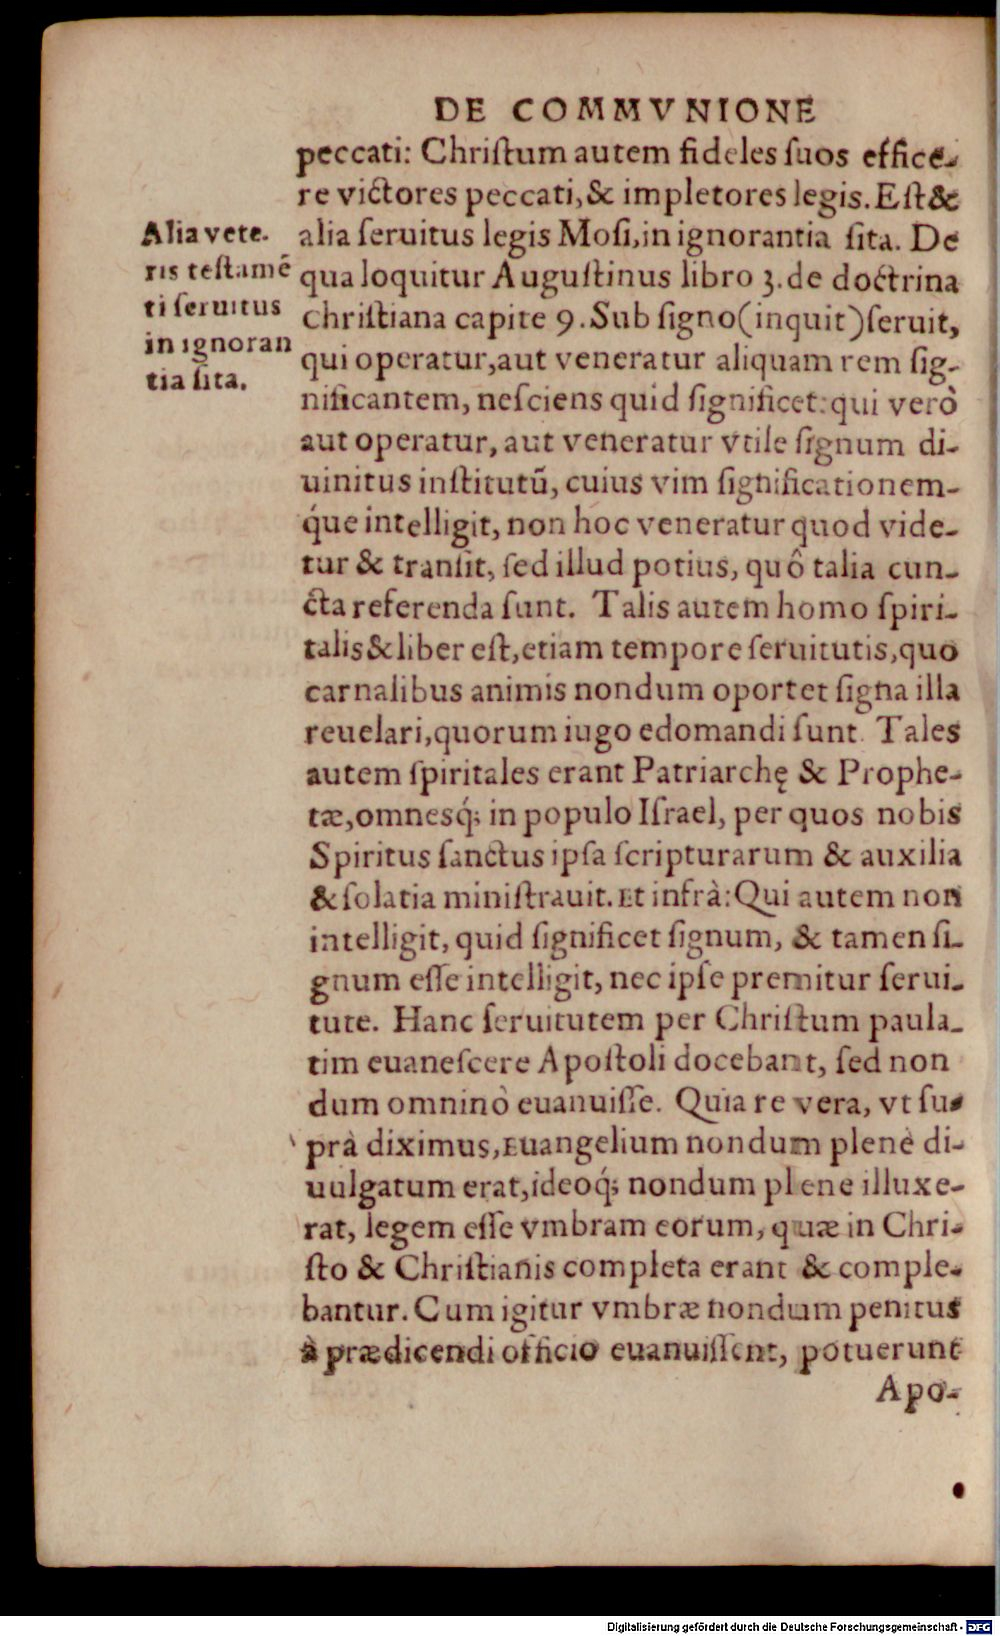 DE COMMVNIONE
peccati: Chriſtum autem fideles ſuos effice-
re victores peccati, & impletores legis. Eſt &
alia ſeruitus legis Moſi, in ignorantia ſita. De
qua loquitur Auguſtinus libro 3. de doctrina
chriſtiana capite 9. Sub ſigno (inquit) ſeruit,
qui operatur, aut veneratur aliquam rem ſig-
nificantem, neſciens quid ſignificet: qui verò
aut operatur, aut veneratur vtile ſignum di-
uinitus inſtitutũ, cuius vim ſignificationem-
q́ue intelligit, non hoc veneratur quod vide-
tur & tranſit, ſed illud potius, quô talia cun-
cta referenda ſunt. Talis autem homo ſpiri-
talis & liber eſt, etiam tempore ſeruitutis, quo
carnalibus animis nondum oportet ſigna illa
reuelari, quorum iugo edomandi ſunt. Tales
autem ſpiritales erant Patriarchę & Prophe-
tæ, omnesq́; in populo Iſrael, per quos nobis
Spiritus ſanctus ipſa ſcripturarum & auxilia
& ſolatia miniſtrauit. Et infrà: Qui autem non
intelligit, quid ſignificet ſignum, & tamen ſi-
gnum eſſe intelligit, nec ipſe premitur ſerui-
tute. Hanc ſeruitutem per Chriſtum paula-
tim euaneſcere Apoſtoli docebant, ſed non
dum omninò euanuiſſe. Quia re vera, vt ſu-
prà diximus, Euangelium nondum plenè di-
uulgatum erat, ideoq́; nondum plene illuxe-
rat, legem eſſe vmbram eorum, quæ in Chri-
ſto & Chriſtianis completa erant & comple-
bantur. Cum igitur vmbræ nondum penitus
à prædicendi officio euanuiſſent, potuerunt
Apo-
Alia vete-
ris teſtamẽ
ti ſeruitus
in ignoran
tia ſita.
Digitalisierung gefördert durch die Deutsche Forschungsgemeinschaft - DFG